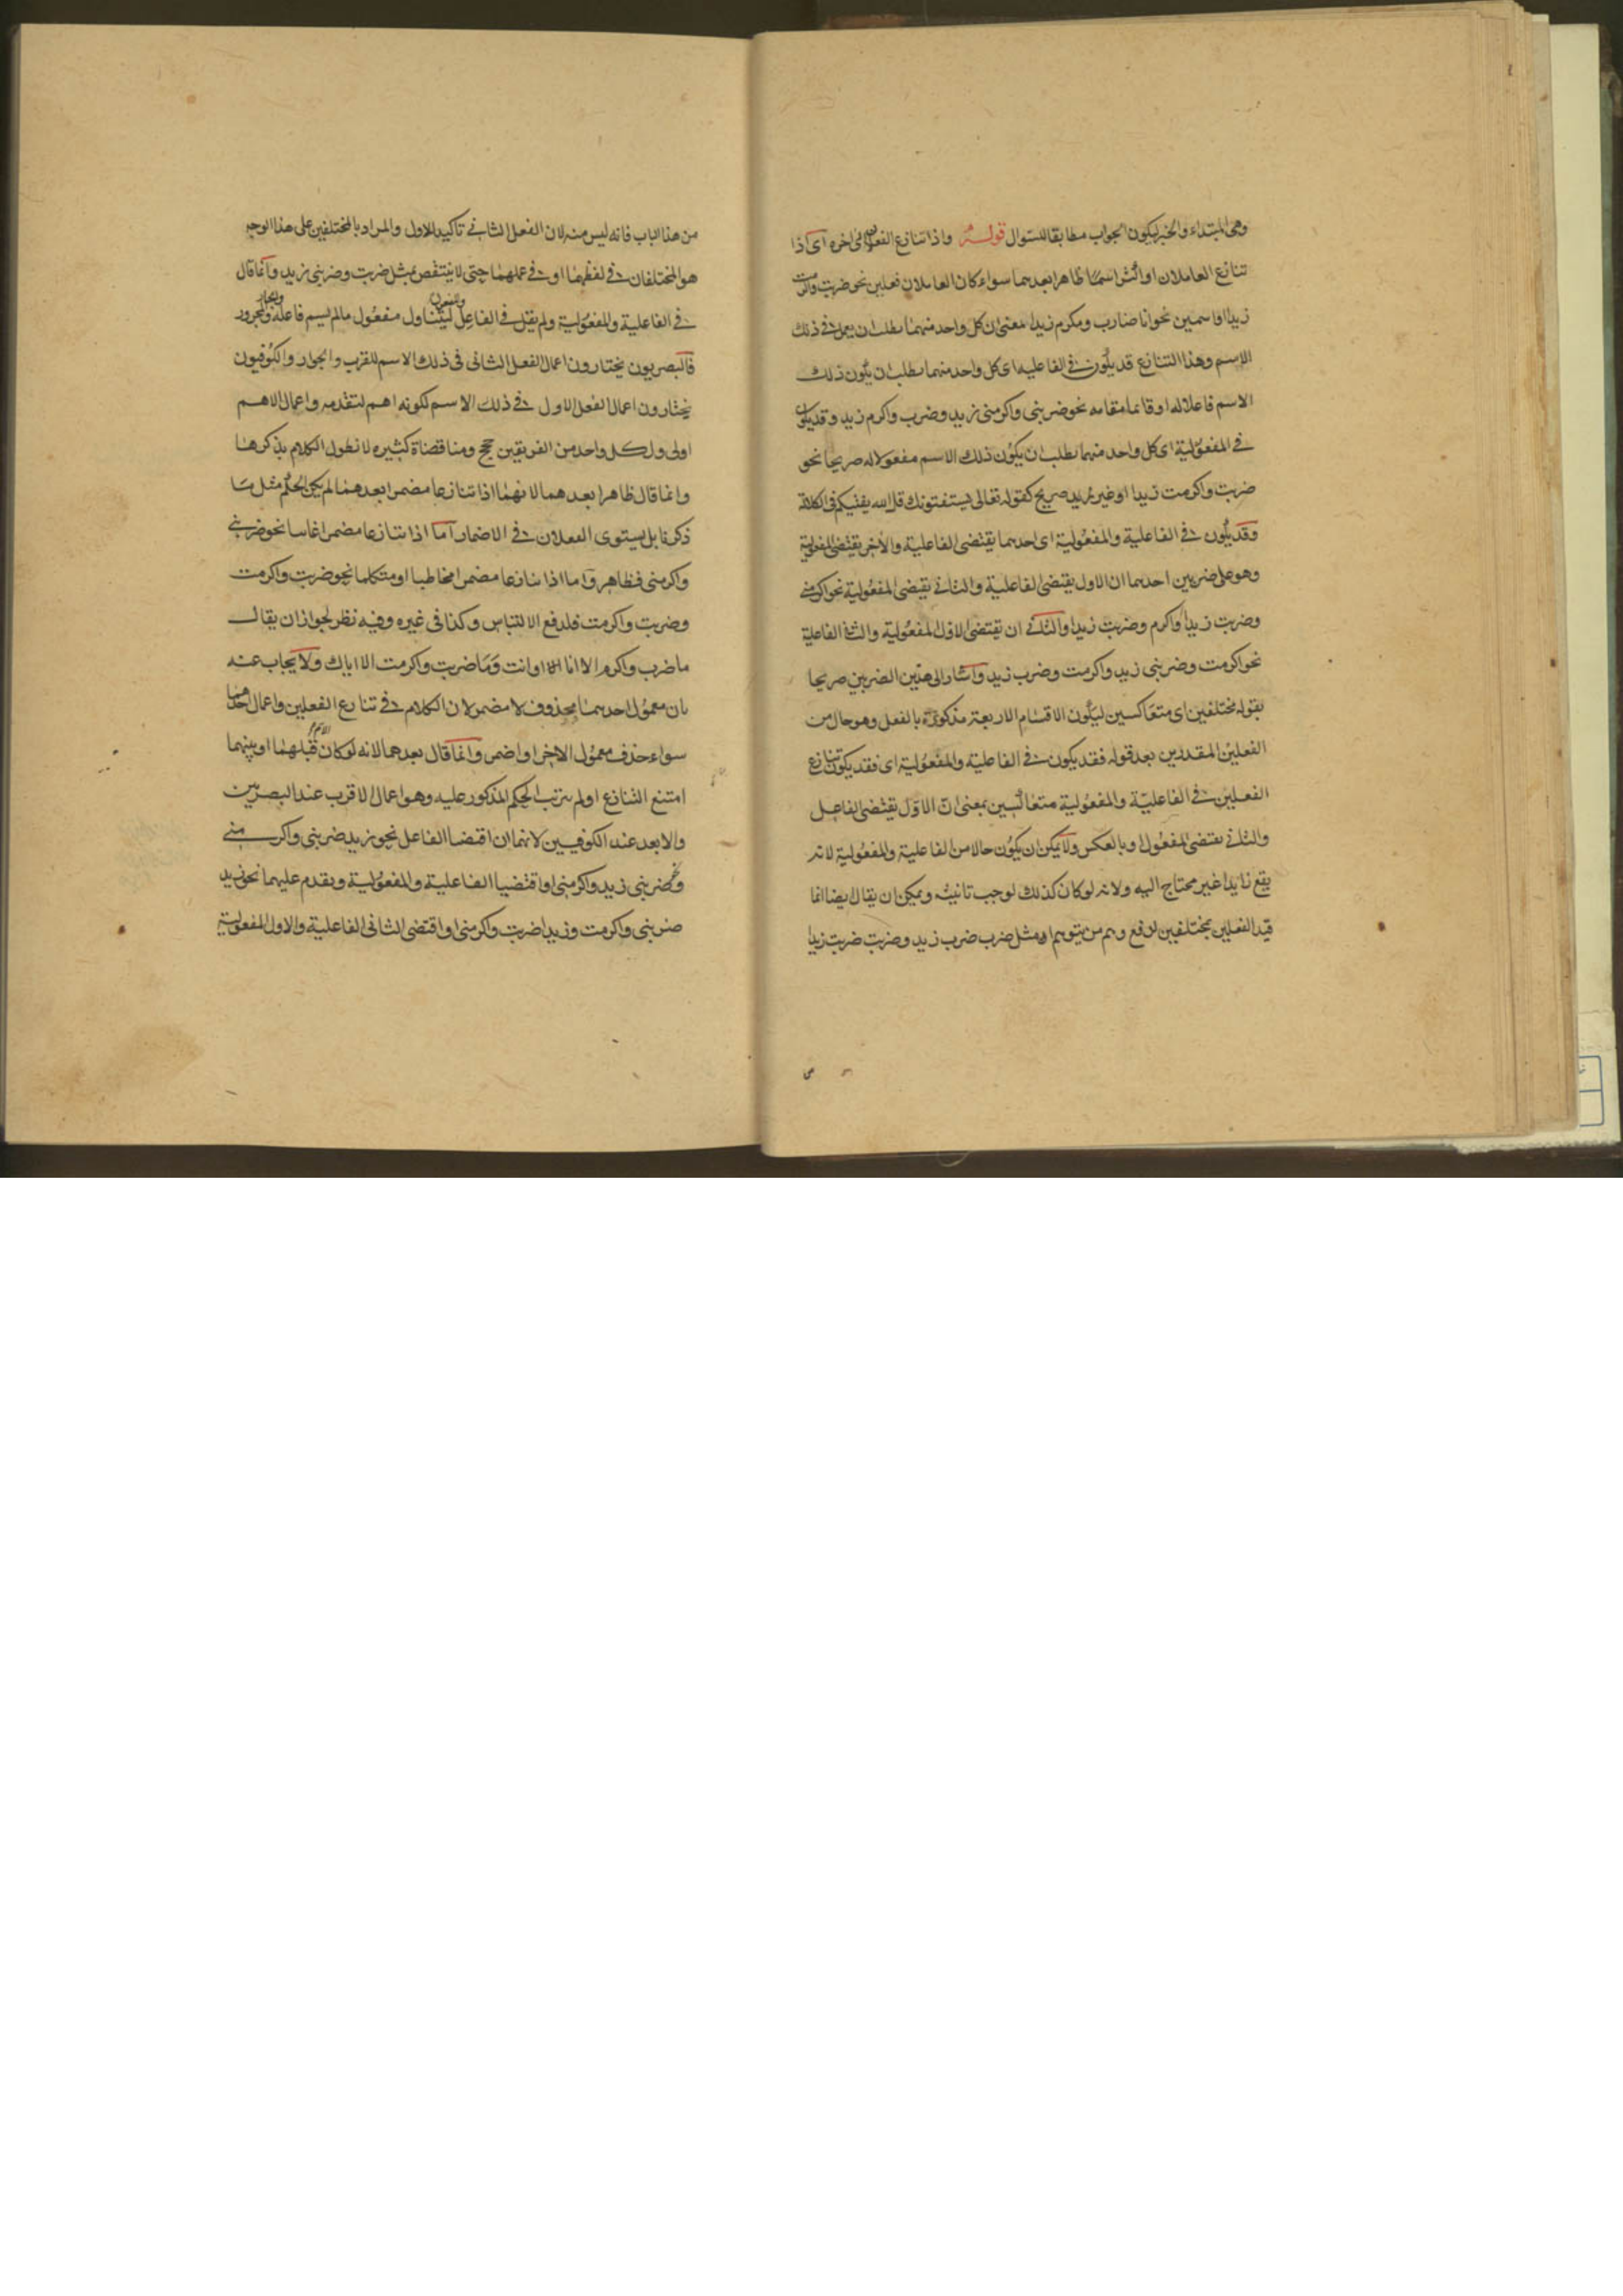 وهى المبتداء والخبر ليكون الجواب مطابقا للسوال قوله واذا تنازع الفعلان الى اخره اى اذا
تنازع العاملان او اكثر اسمًا ظاهرا بعدهما سواء كان العاملان فعلين نحو ضربت واكرمت
زيدا او اسمين نحو انا ضارب ومكرم زيدا معنى ان كل واحد منهما يطلب ان يعمل فى ذلك
الاسم وهذا التنازع قد يكون فى الفاعليه اى كل واحد منهما يطلب ان يكون ذلك
الاسم فاعلا له او قائما مقامه نحو ضربنى واكرمنى زيد وضرب واكرم زيد وقد يكون
فى المفعولية اى كل واحد منهما يطلب ان يكون ذلك الاسم مفعولا له صريحا نحو
ضربت واكرمت زيدا او غير صريح كقوله تعالى يستفتونك قل الله يفتيكم فى الكلالة
وقد يكون فى الفاعلية والمفعولية اى احدهما يقتضى الفاعلية والاخر يقتضى المفعولية
وهو على ضربين احدهما ان الاول يقتضى الفاعلية والثانى يقتضى المفعولية نحو اكرمنى
وضربت زيدا واكرم وضربت زيدا والثانى ان يقتضى الاول المفعولية والثانى الفاعلية
نحو اكرمت وضربنى زيد واكرمت وضرب زيد واشار الى هذين الضربين صريحا
بقوله مختلفين اى متعاكسين ليكون الاقسام الاربعة مذكورة بالفعل وهو حال من
الفعلين المقدرين بعد قوله فقد يكون فى الفاعلية والمفعولية اى فقد يكون تنازع
الفعلين فى الفاعلية والمفعولية بمعنى ان الاول يقتضى الفاعل
والثانى يقتضى المفعول او بالعكس ولا يمكن ان يكون حالا من الفاعلية والمفعولية لانه
يقع زايدا غير محتاج اليه ولانه لو كان كذلك لوجب تانيثه ويمكن ان يقال ايضا انما
قيد الفعلين بمختلفين لدفع وهم من يتوهم ان مثل ضرب ضرب زيد وضربت ضربت زيدا
من هذا الباب فانه ليس منه لان الفعل الثانى تاكيد للاول والمراد بالمختلفين على هذا الوجه
هو المختلفان فى لفظهما او فى عملهما حتى لا ينتقض بمثل ضربت وضربنى زيد وانما قال
فى الفاعلية والمفعولية ولم يقل فى الفاعل والمفعول ليتناول مفعول مالم يسم فاعله والجار والمجرور
فالبصريون يختارون اعمال الفعل الثانى فى ذلك الاسم للقرب والجوار والكوفيون
يختارون اعمال الفعل الاول فى ذلك الاسم لكونه اهم لتقدمه واعمال الاهم
اولى ولكل واحد من الفريقين حجج ومناقضاة كثيره لا نطول الكلام بذكرها
وانما قال ظاهرا بعدهما لانهما اذا تنازعا مضمرا بعدهما لم يكن الحكم مثل ما
ذكرنا بل يستوى الفعلان فى الاضمار اما اذا تنازعا مضمرا غايبا نحو ضربنى
واكرمنى فظاهر واما اذا تنازعا مضمرا مخاطبا او متكلما نحو ضربت واكرمت
وضربت واكرمت فلدفع الالتباس وكذا فى غيره وفيه نظر لجواز ان يقال
ما ضرب واكرم الا انا او انت وما ضربت واكرمت الا اياك ولا يجاب عنه
بان معمول احدهما محذوف لا مضمر لان الكلام فى تنازع الفعلين واعمال احدهما
سواء حذف معمول الاخر او اضمر وانما قال بعدهما لانه لو كان الاسم قبلهما او بينهما
امتنع التنازع او لم يترتب الحكم المذكور عليه وهو اعمال الاقرب عند البصريين
والابعد عند الكوفيين لانهما ان اقتضا الفاعل نحو زيد ضربنى واكرمنى
ونحو ضربنى زيد واكرمنى او اقتضيا الفاعلية والمفعولية وتقدم عليهما نحو زيد
ضربنى واكرمت وزيدا ضربت واكرمنى او اقتضى الثانى الفاعلية والاول المفعولية